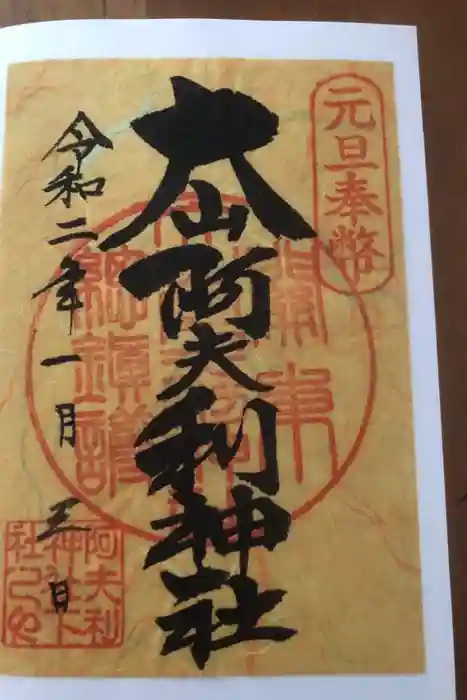 元旦奉幣
大山阿夫利神社
令和二年一月三日
阿夫利
神社